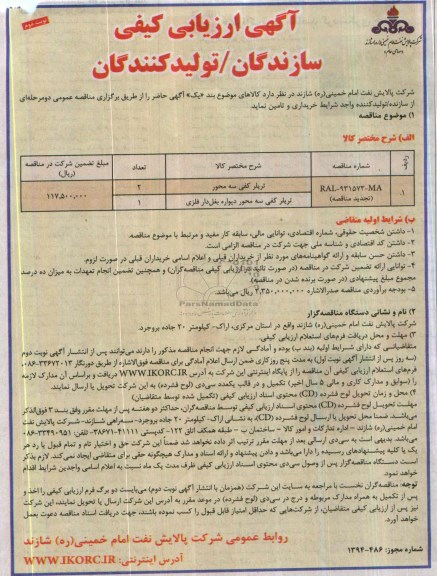 نوبت دوم
شرکت پالایش نفت امام خمینی(ره) شازند
(سهامی عام)
آگهی ارزیابی کیفی
سازندگان/تولیدکنندگان
شرکت پالایش نفت امام خمینی(ره) شازند در نظر دارد کالاهای موضوع بند «یک» آگهی حاضر را از طریق برگزاری مناقصه عمومی دومرحله‌ای
از سازنده/تولیدکننده واجد شرایط خریداری و تامین نماید.
۱) موضوع مناقصه
الف) شرح مختصر کالا
ردیف شماره مناقصه شرح مختصر کالا تعداد مبلغ تضمین شرکت در مناقصه (ریال)
۱. RAL-۹۳۱۵۷۲-MA (تجدید مناقصه) تریلر کفی سه محور ۲ ۱۱۷,۵۰۰,۰۰۰
تریلر کفی سه محور دیواره بغل‌دار فلزی ۱
ب) شرایط اولیه متقاضی
۱- داشتن شخصیت حقوقی، شماره اقتصادی، توانایی مالی، سابقه کار مفید و مرتبط با موضوع مناقصه.
۲- داشتن کد اقتصادی و شناسه ملی جهت شرکت در مناقصه الزامی است.
۳- داشتن حسن سابقه و ارائه گواهینامه‌های مورد نظر از خریداران قبلی و اعلام اسامی خریداران قبلی در صورت لزوم.
۴- توانایی ارائه تضمین شرکت در مناقصه (در صورت تائید در ارزیابی کیفی مناقصه‌گران) و همچنین تضمین انجام تعهدات به میزان ده درصد
مجموع مبلغ پیشنهادی (در صورت برنده شدن در مناقصه)
۵- بودجه برآوردی مناقصه صدرالاشاره ۲,۳۵۰,۰۰۰,۰۰۰ ریال می‌باشد.
۲) نام و نشانی دستگاه مناقصه‌گزار
شرکت پالایش نفت امام خمینی(ره) شازند واقع در استان مرکزی، اراک- کیلومتر ۲۰ جاده بروجرد.
۳) مهلت و محل دریافت فرم‌های استعلام ارزیابی کیفی.
متقاضیانی که دارای شرایط اولیه (بند ب) بوده و آمادگی لازم جهت انجام مناقصه مذکور را دارند می‌توانند پس از انتشار آگهی نوبت دوم
(سه روز پس از انتشار آگهی نوبت اول) به مدت پنج روزکاری ضمن ارسال اعلام آمادگی برای مناقصه فوق‌الاشاره از طریق دورنگار
فرم‌های استعلام ارزیابی کیفی آن مناقصه را از پایگاه اینترنتی این شرکت به آدرس WWW.IKORC.IR دریافت و براساس آن مدارک لازمه
را (سوابق و مدارک کاری و مالی ۵ سال اخیر) تکمیل و در قالب یکعدد سی‌دی (لوح فشرده) به این شرکت تحویل یا ارسال نمایند.
۴) محل و زمان تحویل لوح فشرده (CD) محتوی اسناد ارزیابی کیفی (تکمیل شده توسط متقاضیان)
مهلت تحویل لوح فشرده (CD) محتوای اسناد ارزیابی کیفی توسط مناقصه‌گران، حداکثر دو هفته پس از مهلت مقرر وفق بند ۳ فوق‌الذکر
می‌باشد. ضمنا محل تحویل یا ارسال لوح فشرده (CD) به نشانی اراک- کیلومتر ۲۰ جاده بروجرد-
امام خمینی(ره) شازند - اداره تدارکات و امور کالا
می‌باشد. بدیهی است به سی‌دی ارسالی بعد از مهلت مقرر ترتیب اثر داده نخواهد شد ضمناً این شرکت حق و اختیار تام و تمام قبول یا رد هر
یک یا کلیه پیشنهادهای رسیده را دارا می‌باشد و دادن پیشنهاد و ارائه اسناد و مدارک هیچگونه حقی برای متقاضی ایجاد نمی‌کند. لازم بذکر
است دستگاه مناقصه‌گزار پس از وصول سی‌دی محتوی اسناد ارزیابی کیفی ظرف مدت یک ماه نسبت به اعلام اسامی واجدین شرایط اقدام
خواهد نمود.
توجه: مناقصه‌گران نخست با مراجعه به سایت این شرکت (همزمان با انتشار آگهی نوبت دوم) می‌بایست دو برگ فرم ارزیابی کیفی را اخذ و
پس از تکمیل به همراه مدارک مربوطه و درج در سی‌دی (لوح فشرده) در موعد مقرر به آدرس این شرکت ارسال یا تحویل نمایند، این شرکت
نیز پس از ارزیابی کیفی متقاضیان، از شرکت‌هایی که حداقل امتیاز قابل قبول را کسب نموده باشند، جهت دریافت اسناد مناقصه دعوت بعمل
خواهد آورد.
روابط عمومی شرکت پالایش نفت امام خمینی (ره) شازند
مجوز: ۱۳۹۴-۲۸۶
آدرس اینترنتی: WWW.IKORC.IR